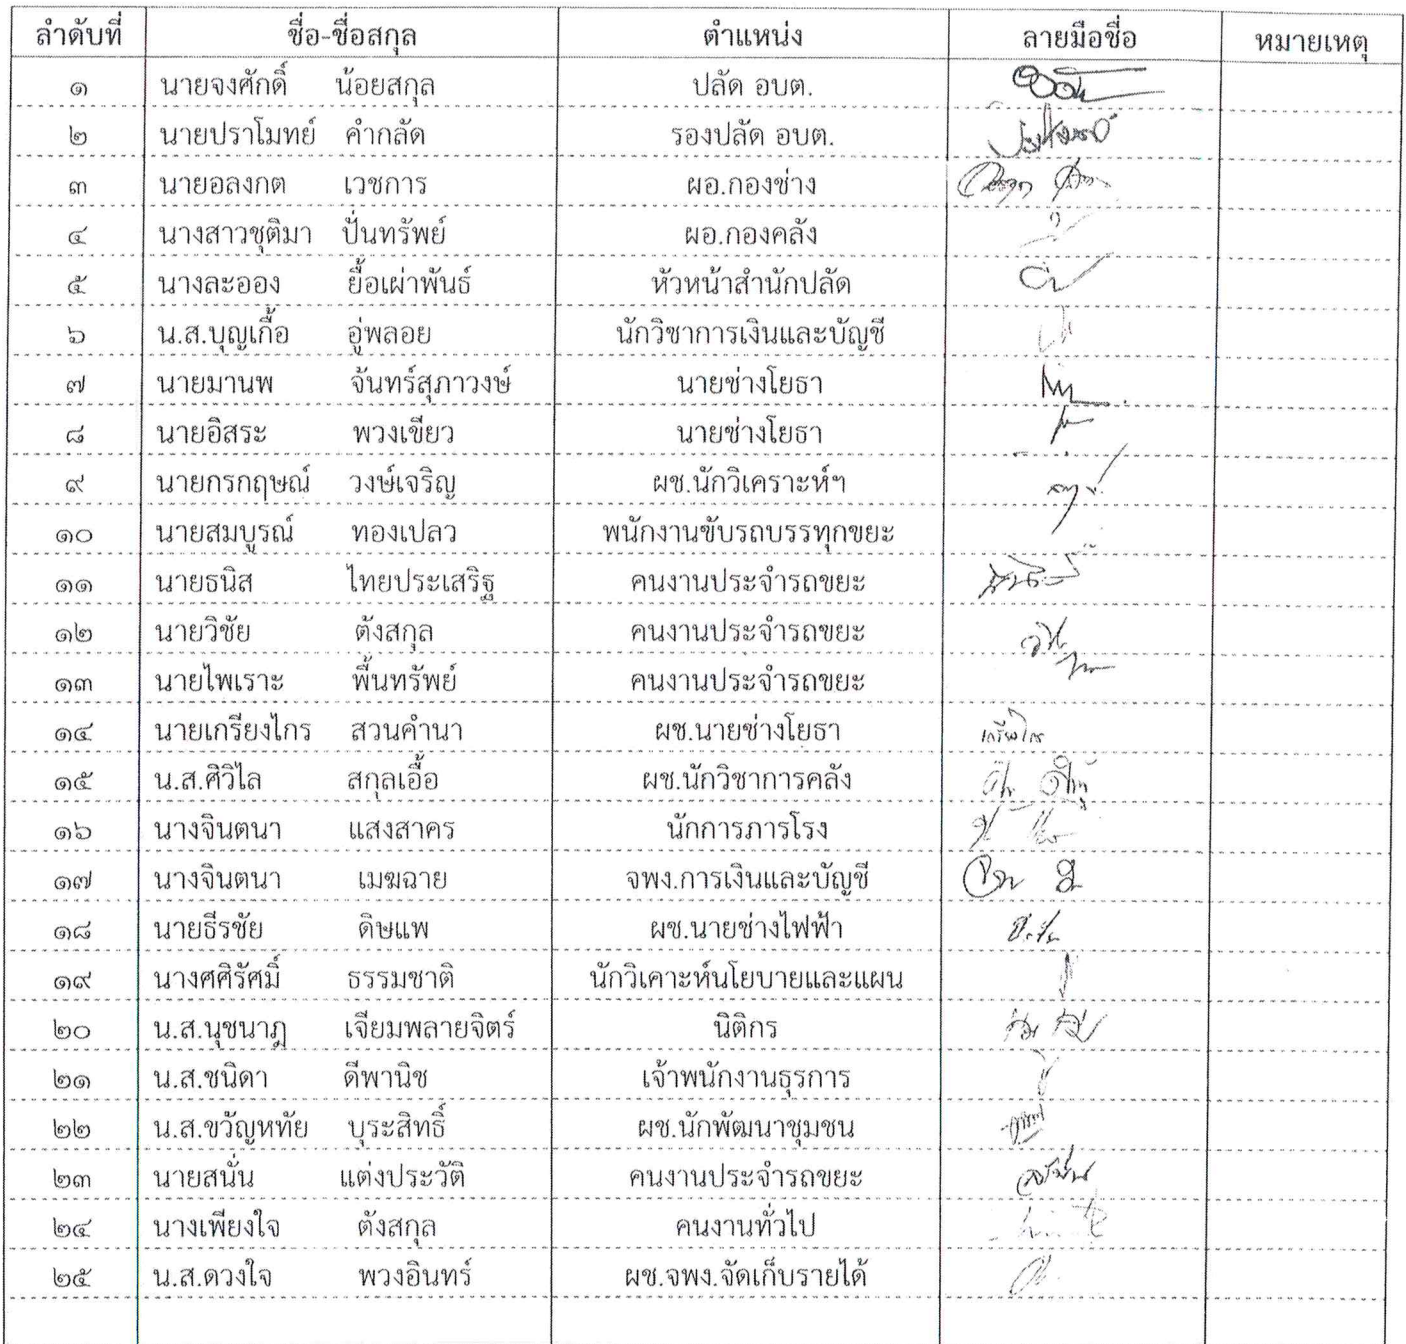 ลำดับที่ ชื่อ-ชื่อสกุล ตำแหน่ง ลายมือชื่อ หมายเหตุ
๑ นายจงศักดิ์ น้อยสกุล ปลัด อบต.
๒ นายปราโมทย์ คำกลัด รองปลัด อบต.
๓ นายอลงกต เวชการ ผอ.กองช่าง
๔ นางสาวชุติมา ปั่นทรัพย์ ผอ.กองคลัง
๕ นางละออง ยื้อเผ่าพันธ์ หัวหน้าสำนักปลัด
๖ น.ส.บุญเกื้อ อู่พลอย นักวิชาการเงินและบัญชี
๗ นายมานพ จันทร์สุภาวงษ์ นายช่างโยธา
๘ นายอิสระ พวงเขียว นายช่างโยธา
๙ นายกรกฤษณ์ วงษ์เจริญ ผช.นักวิเคราะห์ฯ
๑๐ นายสมบูรณ์ ทองเปลว พนักงานขับรถบรรทุกขยะ
๑๑ นายธนิส ไทยประเสริฐ คนงานประจำรถขยะ
๑๒ นายวิชัย ตังสกุล คนงานประจำรถขยะ
๑๓ นายไพเราะ พื้นทรัพย์ คนงานประจำรถขยะ
๑๔ นายเกรียงไกร สวนคำนา ผช.นายช่างโยธา เกรียงไกร
๑๕ น.ส.ศิวิไล สกุลเอื้อ ผช.นักวิชาการคลัง
๑๖ นางจินตนา แสงสาคร นักการภารโรง
๑๗ นางจินตนา เมฆฉาย จพง.การเงินและบัญชี
๑๘ นายธีรชัย ดิษแพ ผช.นายช่างไฟฟ้า
๑๙ นางศศิรัศมิ์ ธรรมชาติ นักวิเคาะห์นโยบายและแผน
๒๐ น.ส.นุชนาฏ เจียมพลายจิตร์ นิติกร
๒๑ น.ส.ชนิดา ดีพานิช เจ้าพนักงานธุรการ
๒๒ น.ส.ขวัญหทัย บุระสิทธิ์ ผช.นักพัฒนาชุมชน
๒๓ นายสนั่น แต่งประวัติ คนงานประจำรถขยะ
๒๔ นางเพียงใจ ตังสกุล คนงานทั่วไป
๒๕ น.ส.ดวงใจ พวงอินทร์ ผช.จพง.จัดเก็บรายได้